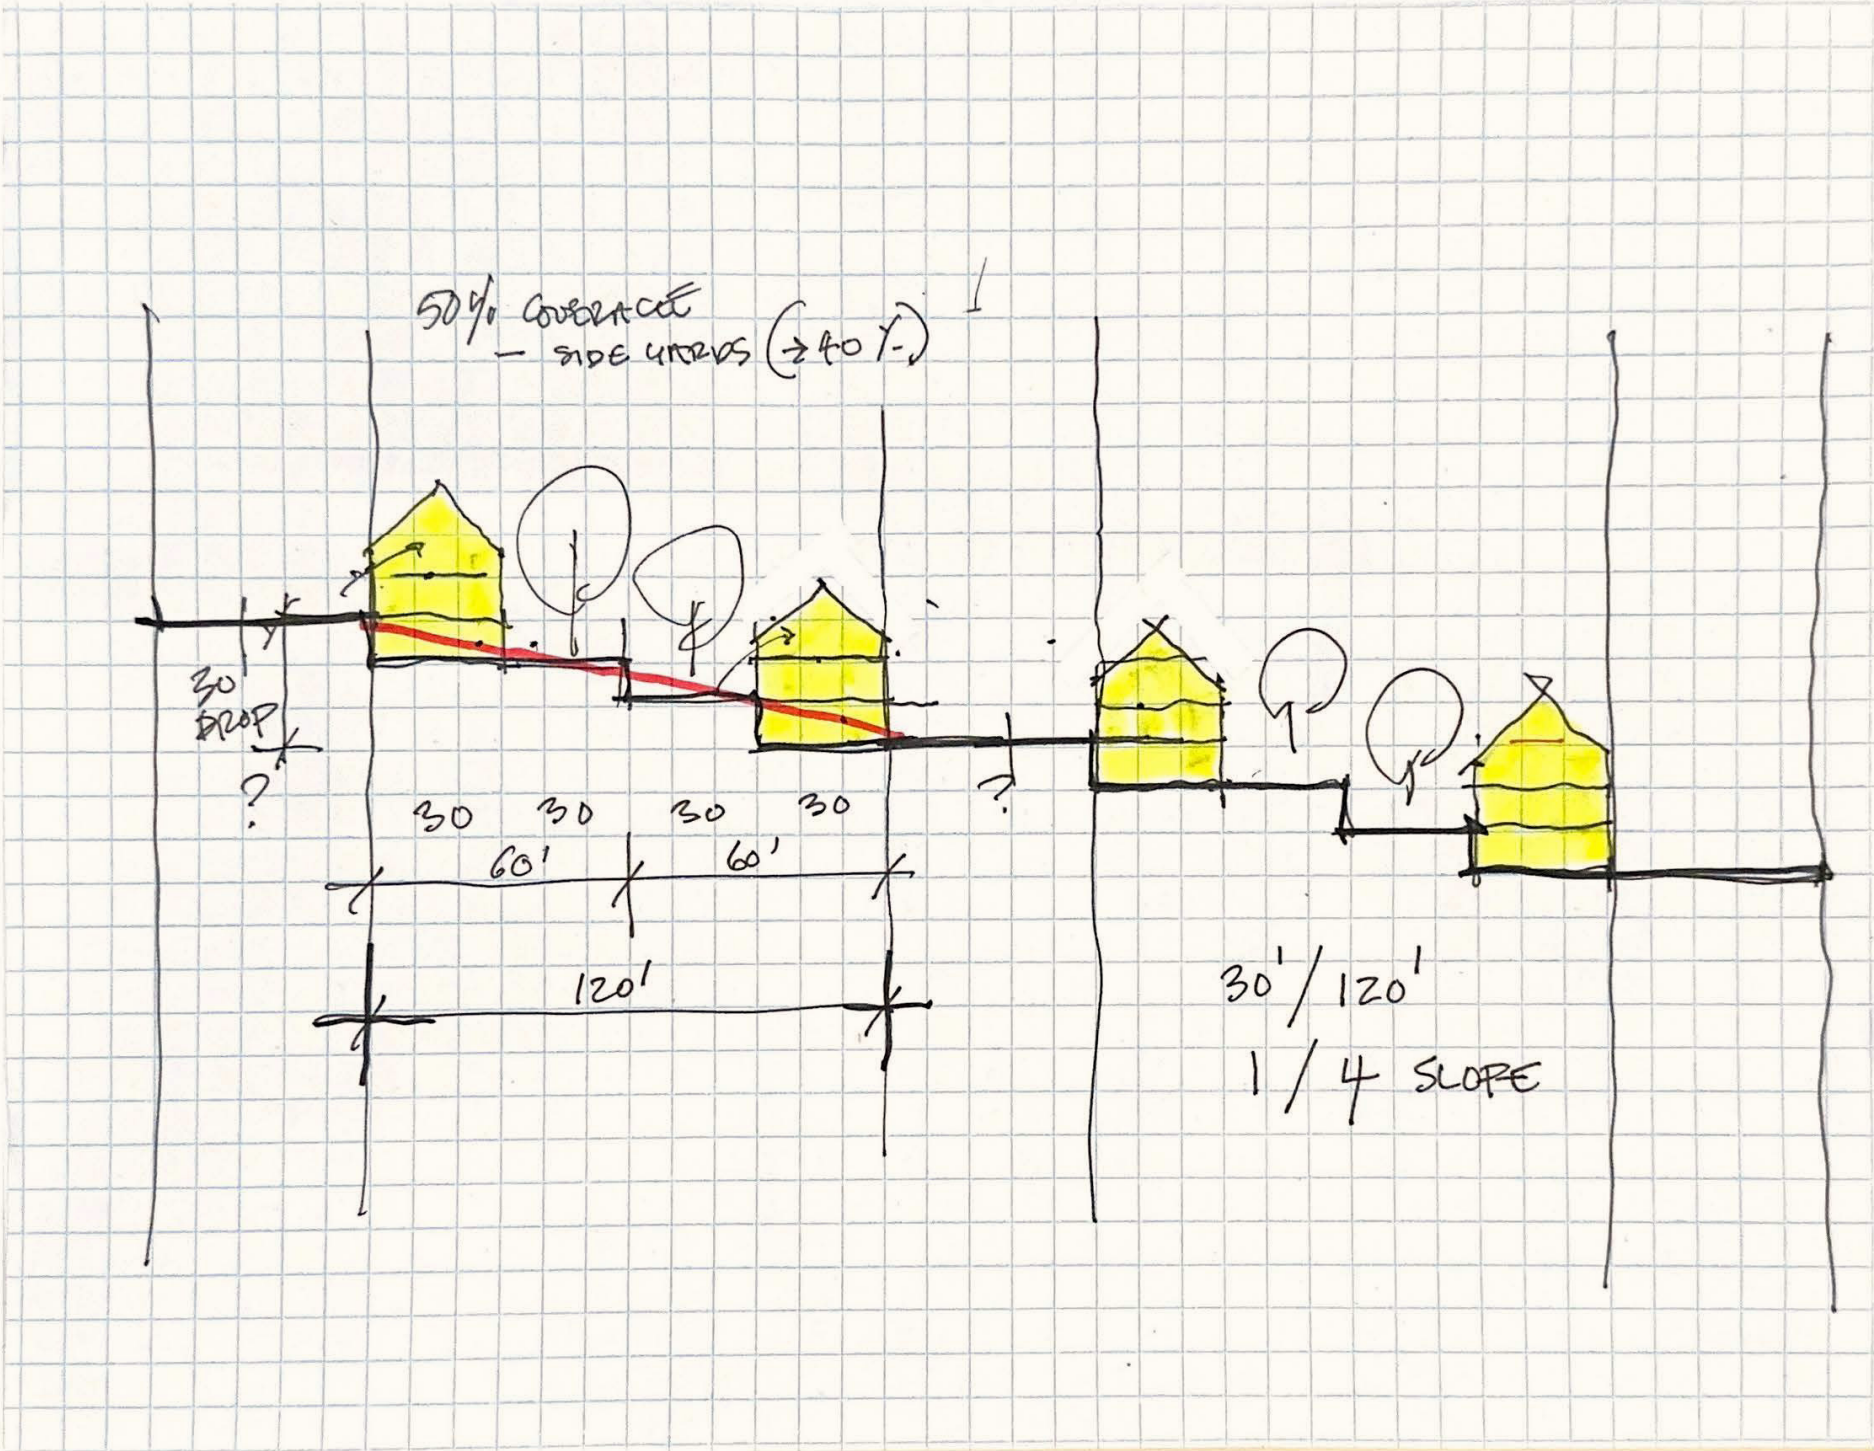 50% COVERAGE
- SIDE YARDS (→40%)
30
DROP
?
?
30 30 30 30
60' 60'
120'
30'/120'
1/4 SLOPE